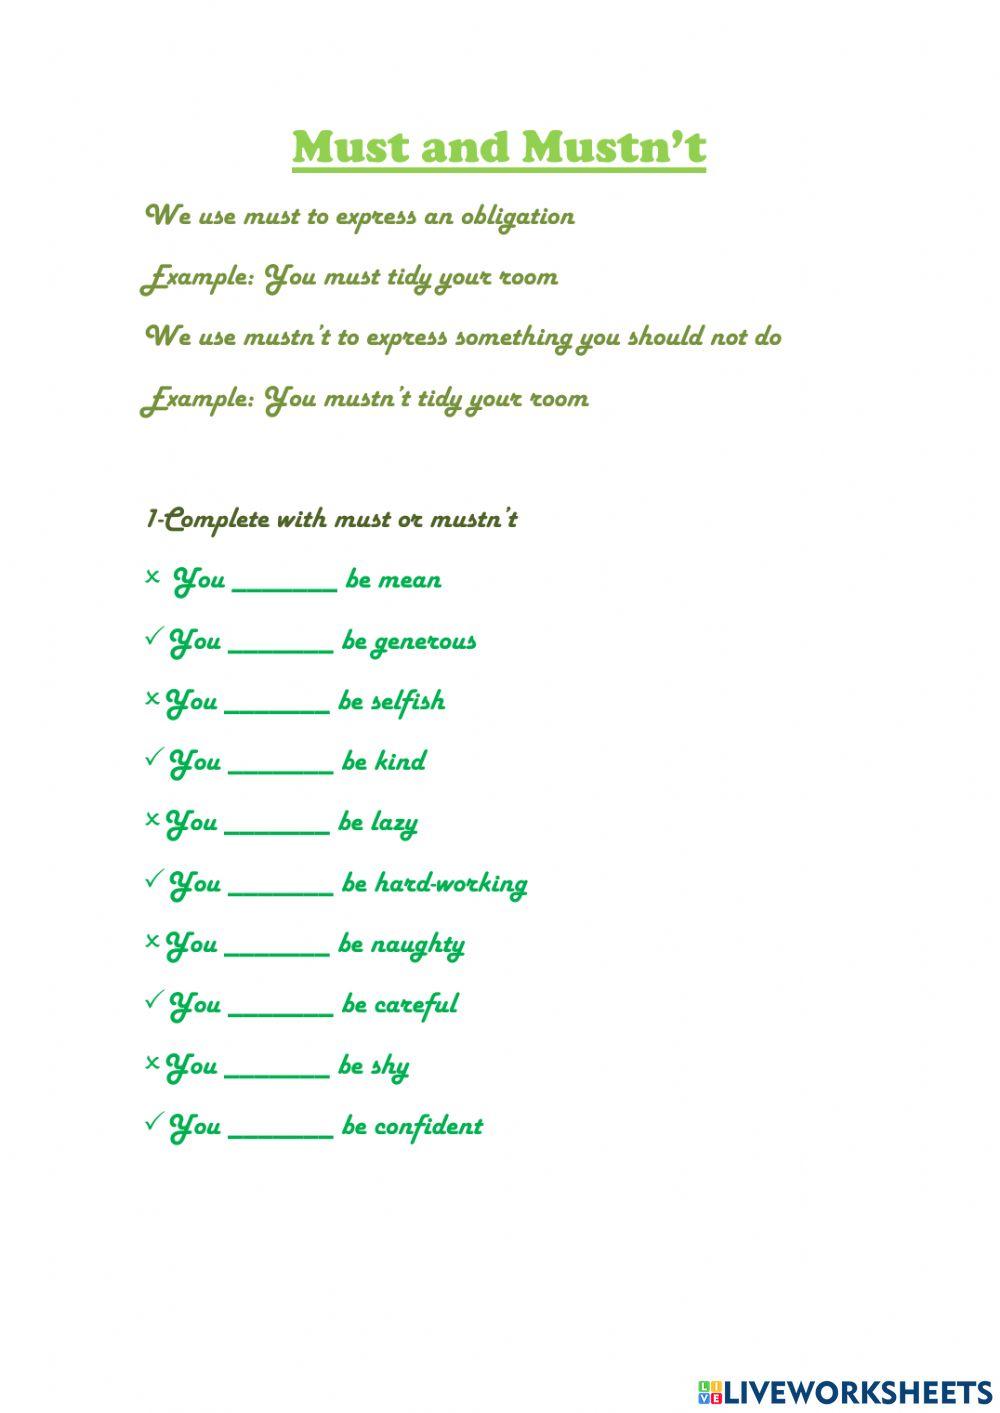 Must and Mustn't
We use must to express an obligation
Example: You must tidy your room
We use mustn't to express something you should not do
Example: You mustn't tidy your room
1-Complete with must or mustn't
× You _______ be mean
✓ You _______ be generous
× You _______ be selfish
✓ You _______ be kind
× You _______ be lazy
✓ You _______ be hard-working
× You _______ be naughty
✓ You _______ be careful
× You _______ be shy
✓ You _______ be confident
LIVE LIVEWORKSHEETS